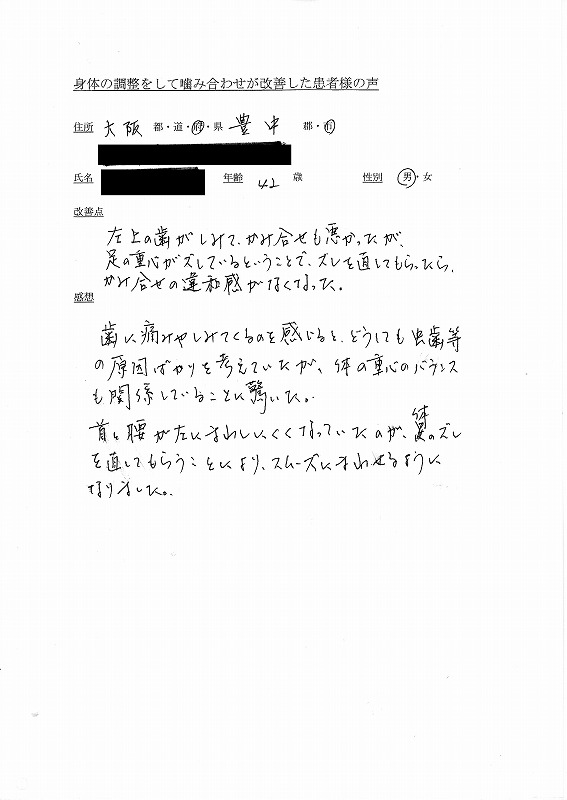 身体の調整をして噛み合わせが改善した患者様の声
住所 大阪 都・道・府・県 豊中 郡・市
氏名 年齢 42 歳 性別 男・女
改善点
左上の歯がしみて、かみ合せも悪かったが、
足の重心がズレているということで、ズレを直してもらったら、
かみ合せの違和感がなくなった。
感想
歯に痛みやしみてくるのを感じると、どうしても虫歯等
の原因ばかりを考えていたが、体の重心のバランス
も関係していることに驚いた。
首と腰が左にまわしにくくなっていたのが、体のズレ
を直してもらうことにより、スムーズにまわせるように
なりました。